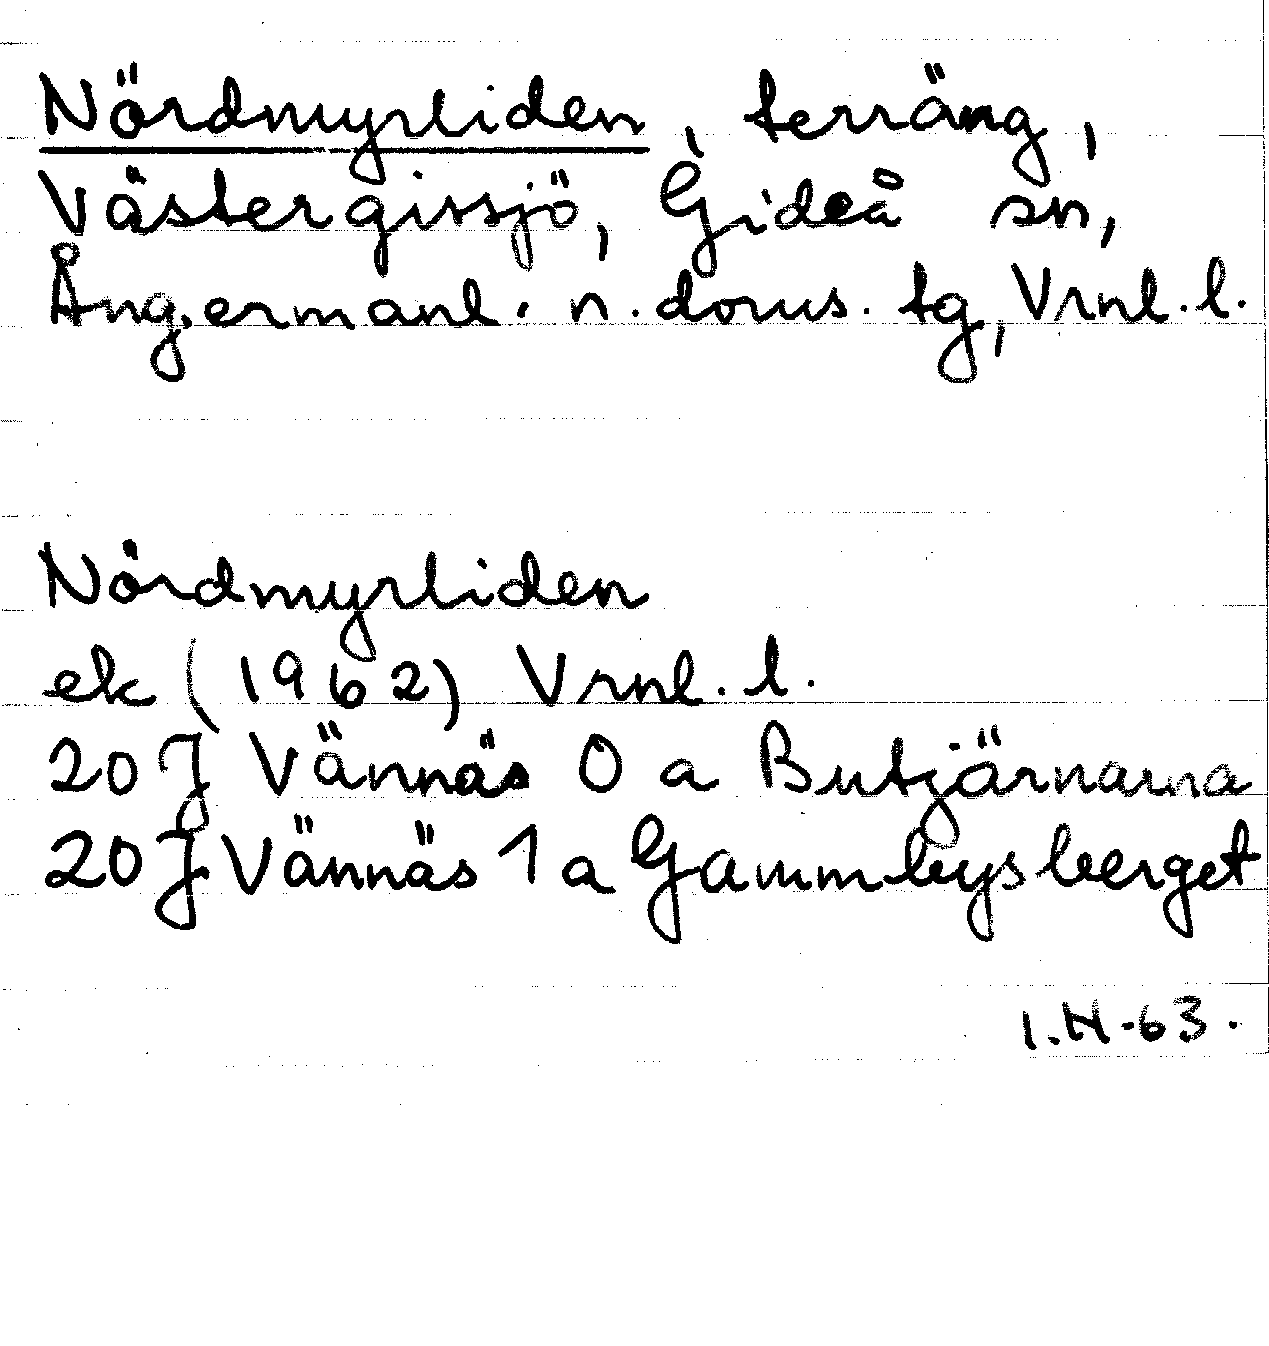 Nördmyrliden, terräng,
Västergissjö, Gideå sn,
Ångermanl. n. doms. tg, Vrnl. l.
Nördmyrliden
ek (1962) Vrnl. l.
20 J Vännäs 0 a Butjärnarna
20 J Vännäs 1 a Gammbysberget
I.H-63.